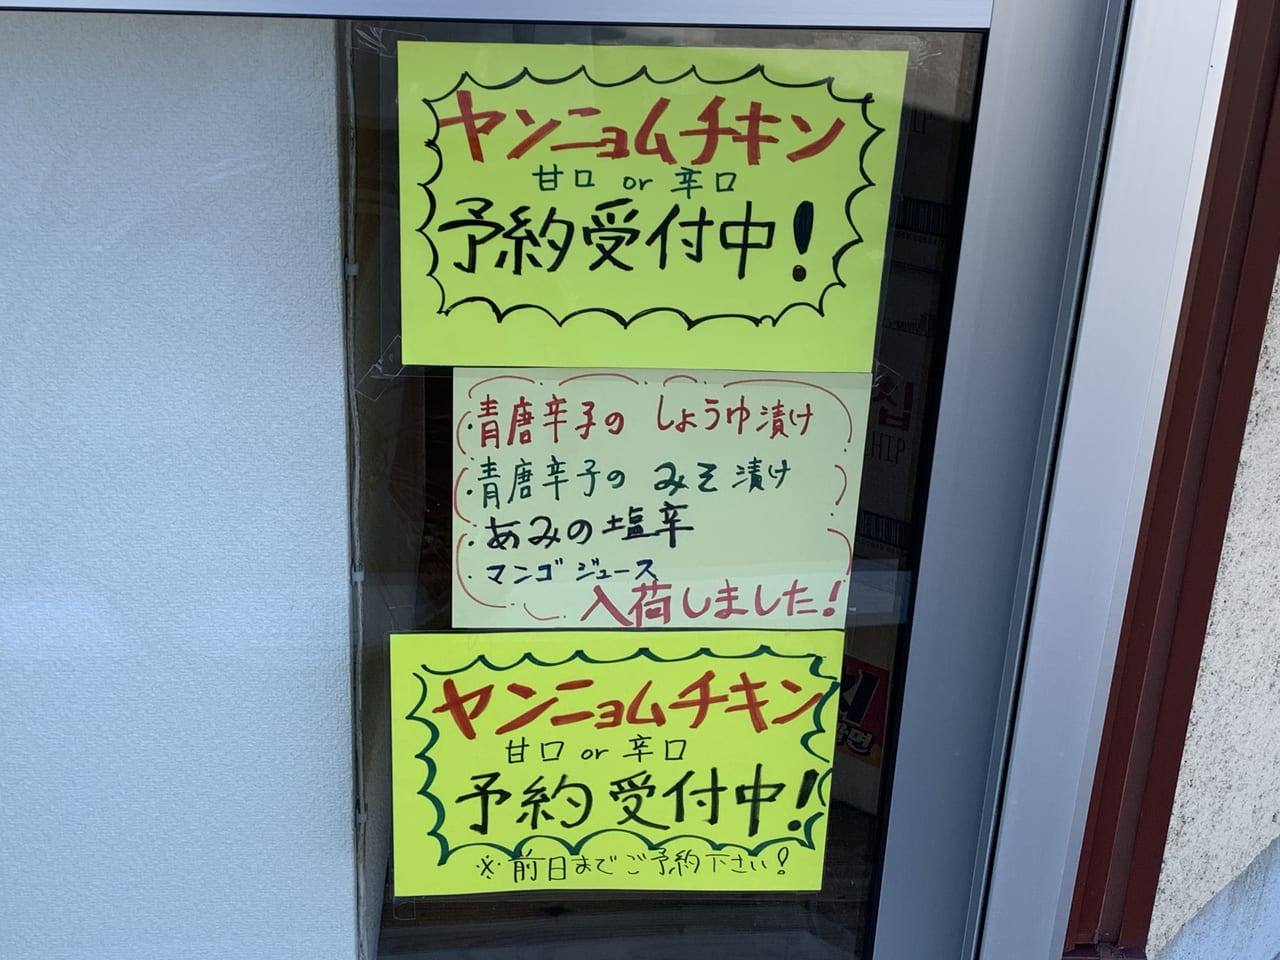 ヤンニョムチキン
甘口 or 辛口
予約受付中!
・青唐辛子の しょうゆ漬け
・青唐辛子の みそ漬け
・あみの塩辛
・マンゴジュース
入荷しました!
ヤンニョムチキン
甘口 or 辛口
予約受付中!
※前日までご予約下さい!
집
HIP